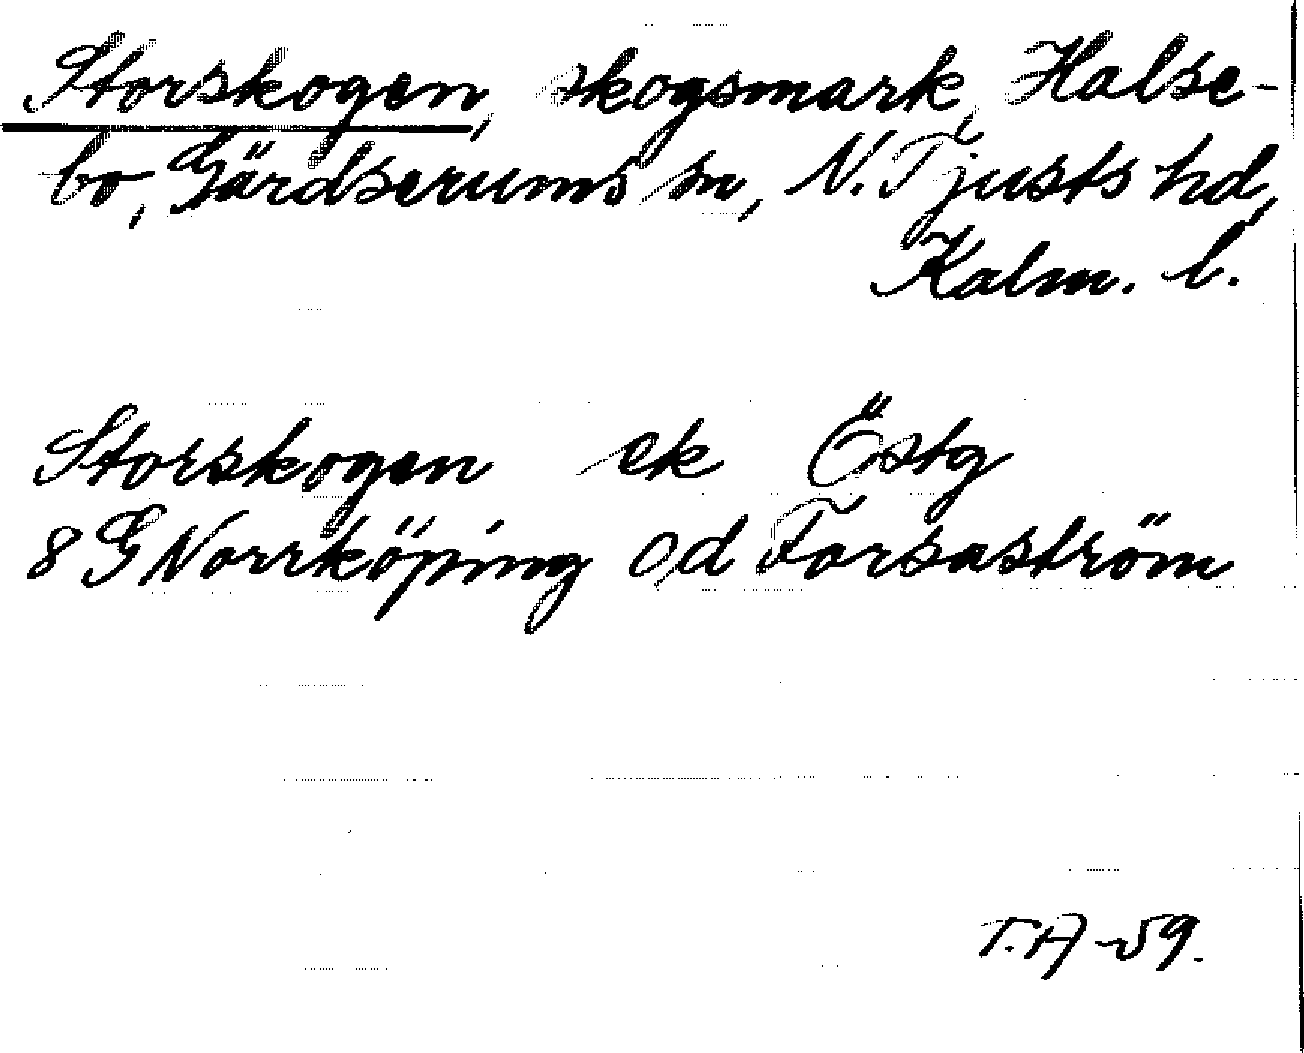 Storskogen, skogsmark, Halse-
bo, Gärdserums sn, N. Tjusts hd,
Kalm. l.
Storskogen ek Östg
8 G Norrköping Od Forsaström
T.A -59.